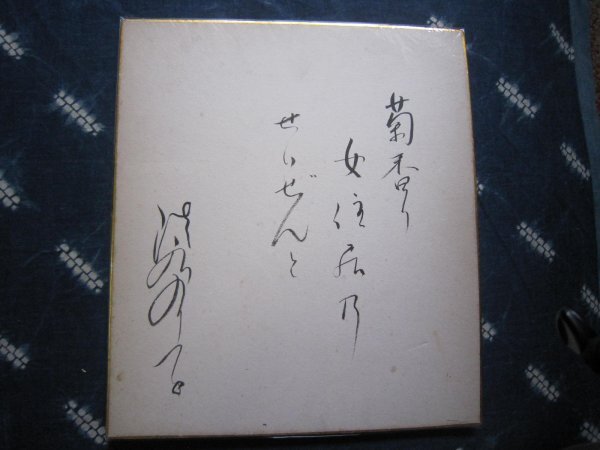 菊香り
女住居乃
せいぜんと